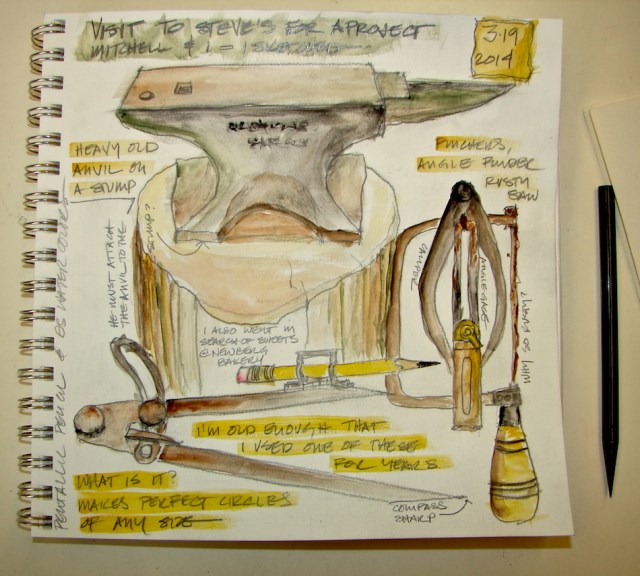 VISIT TO STEVE'S FOR A PROJECT
MITCHELL & I - 1 SKETCHING
3.19
2014
HEAVY OLD
ANVIL ON
A STUMP
PINCHERS,
ANGLE FINDER
RUSTY
SAW
STUMP?
HE MUST ATTACH
THE ANVIL TO THE
CALIPER
ANGLE GAGE
WHY SO RUSTY?
I ALSO WENT IN
SEARCH OF SWEETS
@ NEWBERG
BAKERY
I'M OLD ENOUGH THAT
I USED ONE OF THESE
FOR YEARS
WHAT IS IT?
MAKES PERFECT CIRCLES
OF ANY SIZE
COMPASS
SHARP
PENCIL &
WATER